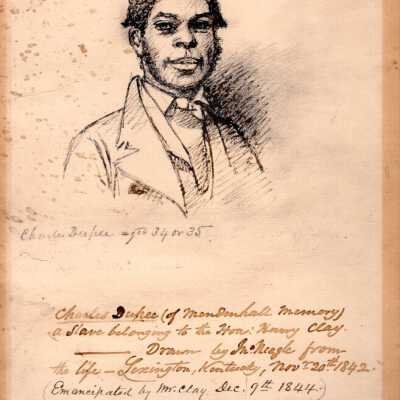 Charles Dupee = age 34 or 35.
Charles Dupee (of Mendenhall Memory)
a Slave belonging to the Hon: Henry Clay.
—— Drawn by Jno. Neagle from
the life — Lexington, Kentucky, Novr. 20th 1842.
(Emancipated by Mr. Clay. Dec. 9th 1844.)